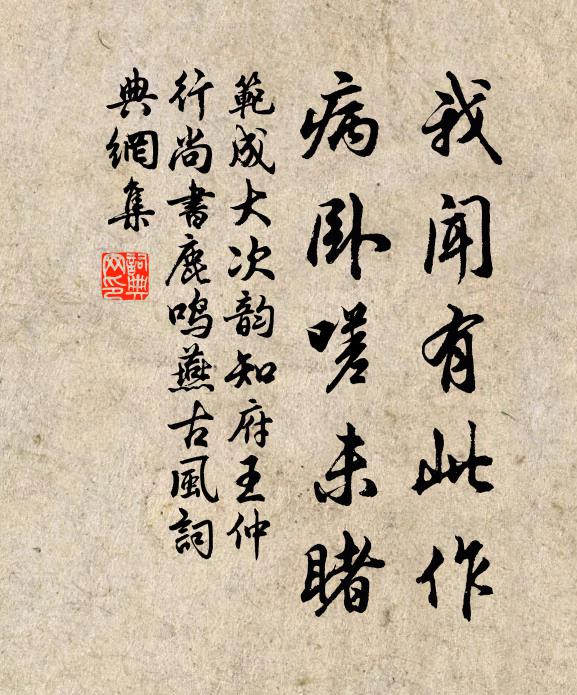 我聞有此作
病卧嗟未睹
範成大次韵知府王仲
行尚書鹿鳴燕古風詞
典網集
詞典網印